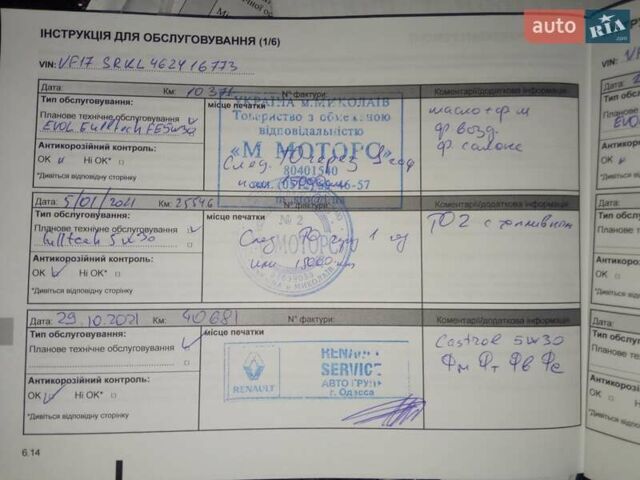 auto RIA.com
ІНСТРУКЦІЯ ДЛЯ ОБСЛУГОВУВАННЯ (1/6)
VIN: VF17 SRKL462416773
Дата: Км: 10 371 N° фактури: Коментарі/додаткова інформація
Тип обслуговування: місце печатки
Планове технічне обслуговування
EVOL Fulltech FE5w30
Антикорозійний контроль:
OK Ні OK*
*Дивіться відповідну сторінку
УКРАЇНА м.МИКОЛАЇВ
Товариство з обмеженою
відповідальністю
"М МОТОРС"
80401540
След. ТО через 1 год
или 15000 км
масло + ф м
ф возд.
ф салона
Дата: 5/01/2021 Км: 25546 N° фактури: Коментарі/додаткова інформація
Тип обслуговування: місце печатки
Планове технічне обслуговування
Fulltech 5w30
Антикорозійний контроль:
OK Ні OK*
*Дивіться відповідну сторінку
№ 2
МОТОРС
След ТО через 1 год
или 15000 км
ТО2 с топливным
Дата: 29.10.2021 Км: 40681 N° фактури: Коментарі/додаткова інформація
Тип обслуговування: місце печатки
Планове технічне обслуговування
Антикорозійний контроль:
OK Ні OK*
*Дивіться відповідну сторінку
RENAULT
RENAULT
SERVICE
АВТО ГРУП
г. Одесса
Castrol 5w30
Фм Фт Фв Фс
6.14